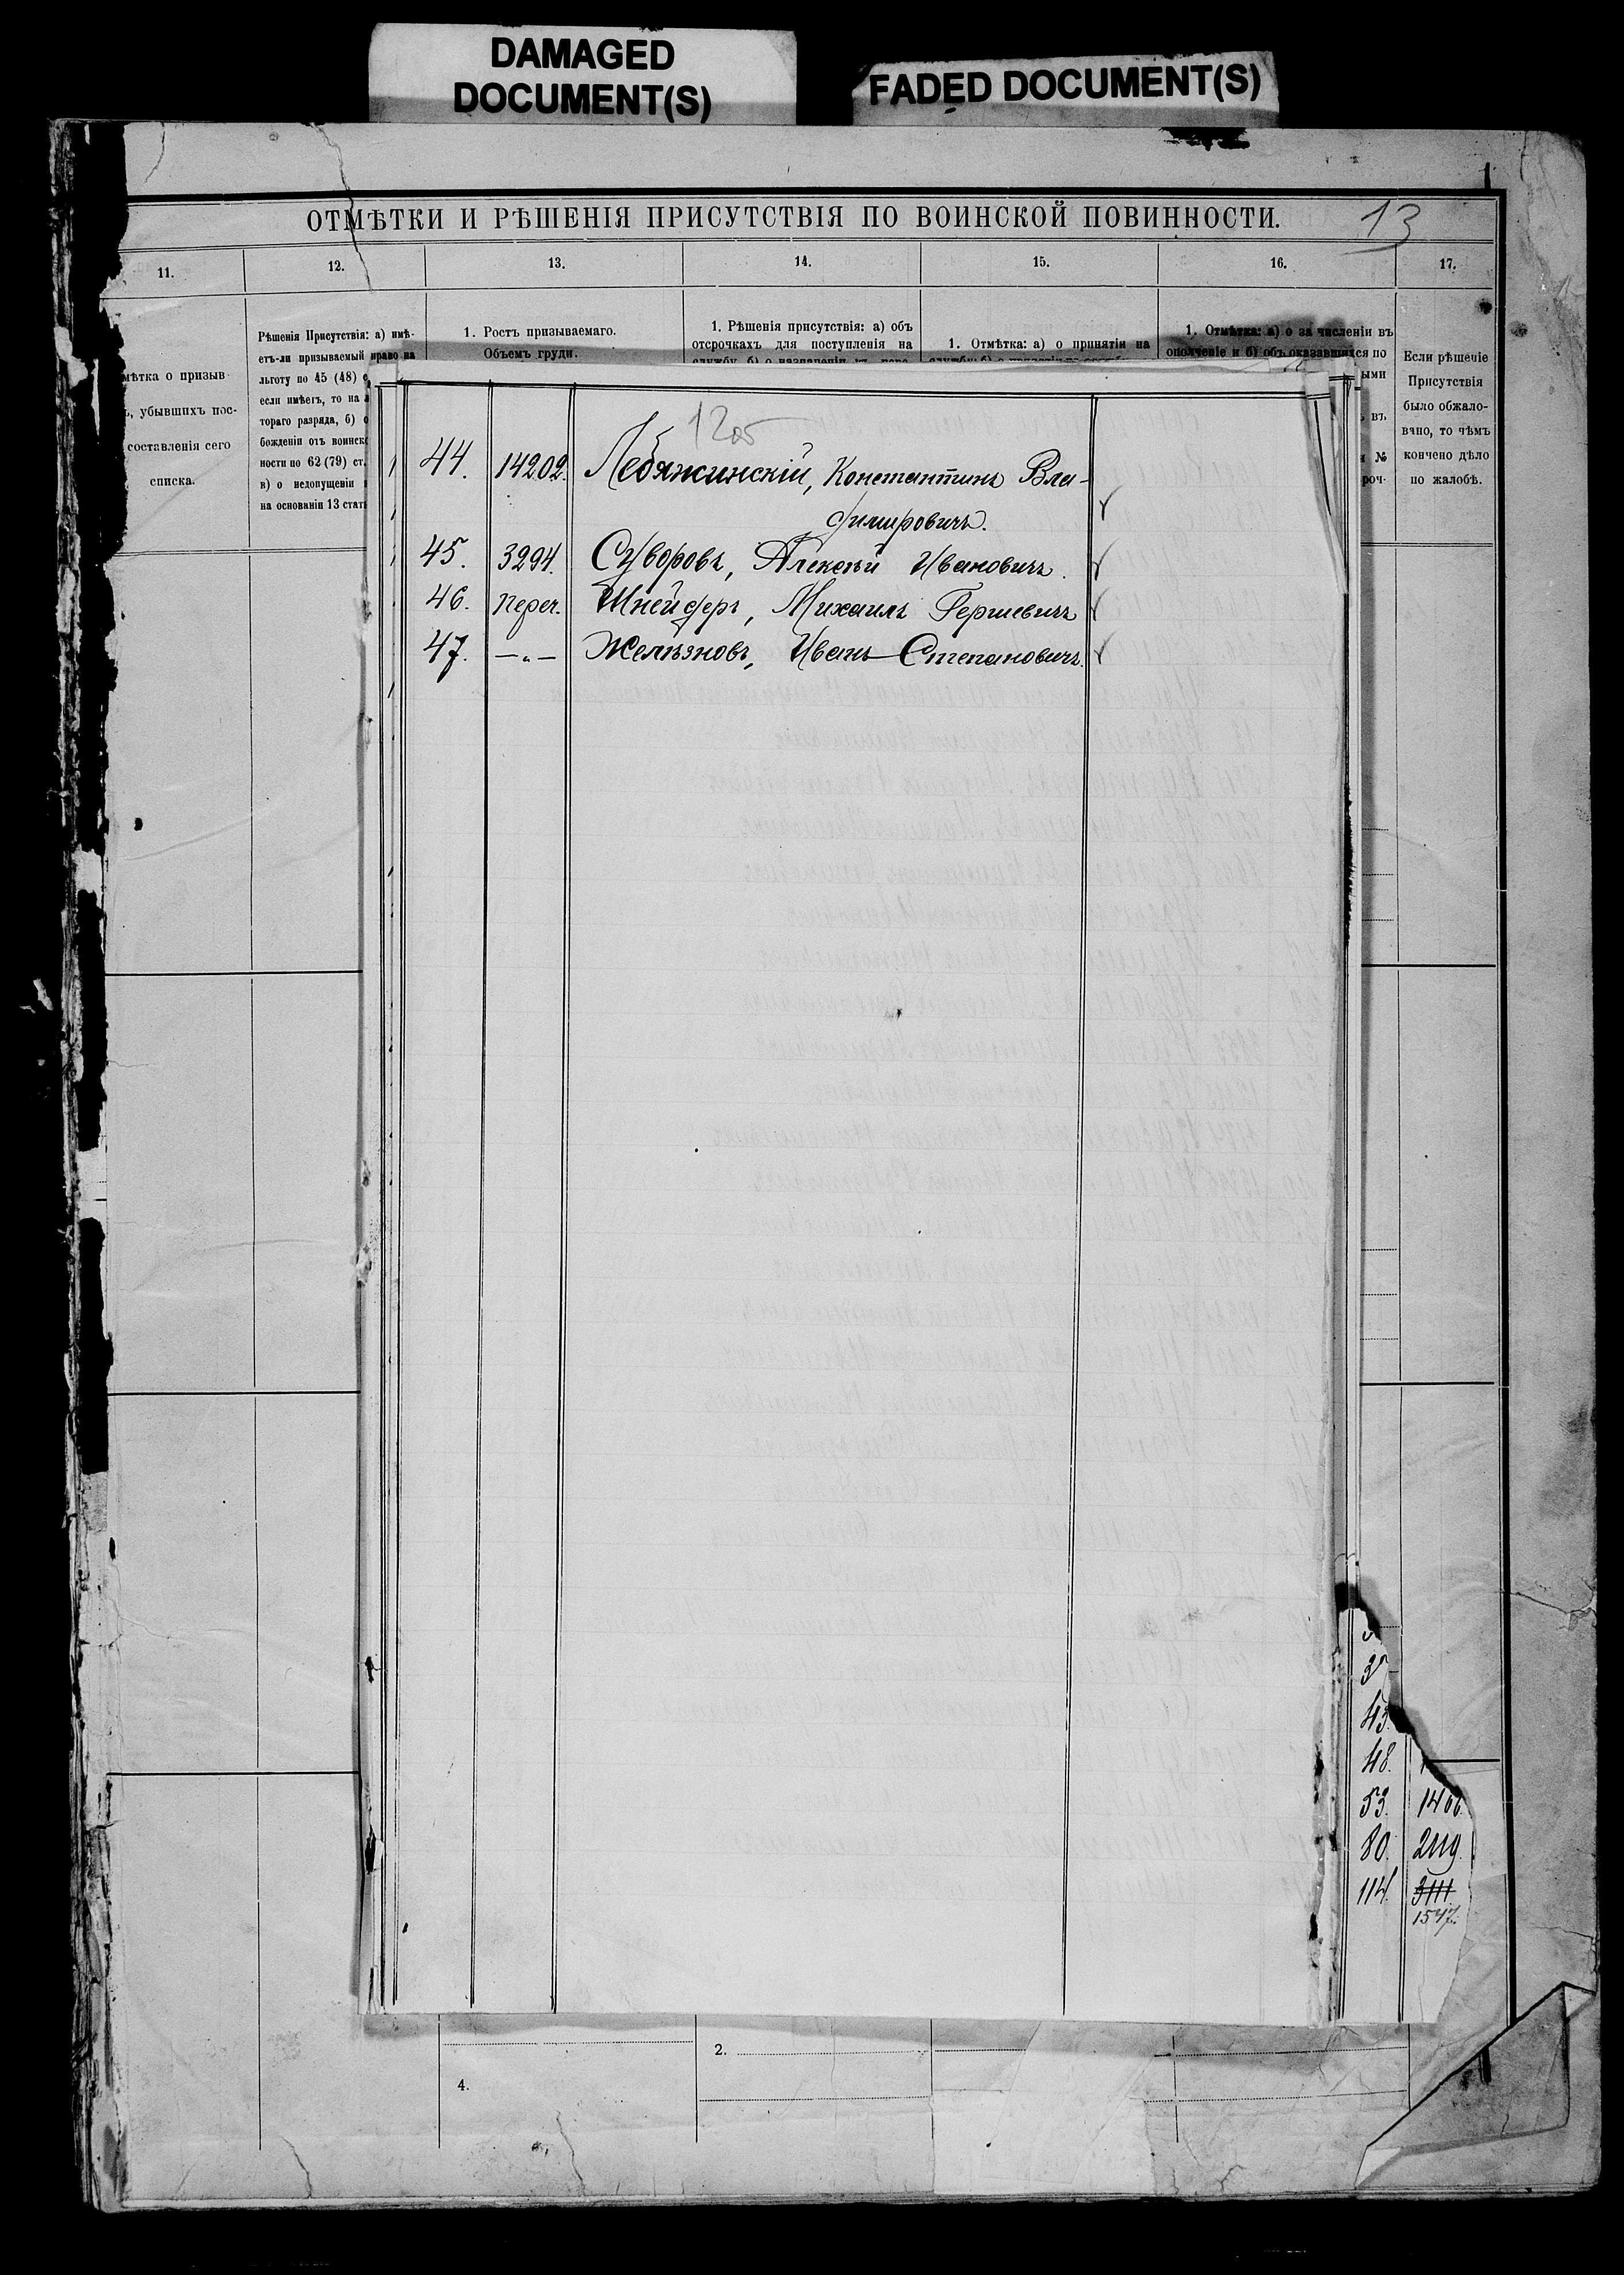 DAMAGED
DOCUMENT(S)
FADED DOCUMENT(S)
ОТМѢТКИ И РѢШЕНІЯ ПРИСУТСТВІЯ ПО ВОИНСКОЙ ПОВИННОСТИ.
13
11.
12.
13.
14.
15.
16.
17.
о призыв
убывшихъ пос-
составленія сего
списка.
Рѣшенія Присутствія: а) имѣ-
етъ-ли призываемый право на
льготу по 45 (48)
если имѣетъ, то на
тораго разряда, б)
божденіи отъ воинск
ности по 62 (79) ст.
в) о недопущеніи
на основаніи 13 стат
1. Ростъ призываемаго.
Объемъ груди.
1. Рѣшенія присутствія: а) объ
отсрочкахъ для поступленія на
службу, б) о назначеніи
1. Отмѣтка: а) о принятіи на
1. Отмѣтка: а) о зачисленіи въ
ополченіе и б) объ оказавшихся по
ыми
въ
№
роч-
Если рѣшеніе
Присутствія
было обжало-
вано, то чѣмъ
кончено дѣло
по жалобѣ.
44. 14202. Лебяжинскій, Константинъ Вла-
димировичъ.
45. 3294. Суворовъ, Алексѣй Ивановичъ.
46. Переч. Шнейдеръ, Михаилъ Гершевичъ
47. —„— Желѣзновъ, Иванъ Степановичъ.
43.
48.
53.
80. 2119.
114. 3111
1547.
2.
4.